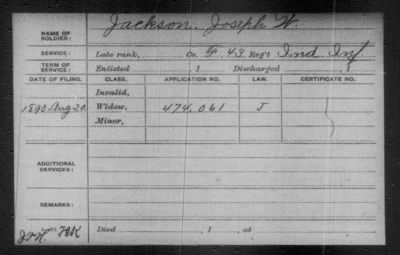 NAME OF SOLDIER: Jackson, Joseph W.
SERVICE: Late rank, Co. F. 43 Reg't Ind. Inf
TERM OF SERVICE: Enlisted , 1 Discharged , 1
DATE OF FILING. CLASS. APPLICATION NO. LAW. CERTIFICATE NO.
Invalid,
1890 Aug 20 Widow, 474,061 J
Minor,
ADDITIONAL SERVICES:
REMARKS:
Died , 1 , at